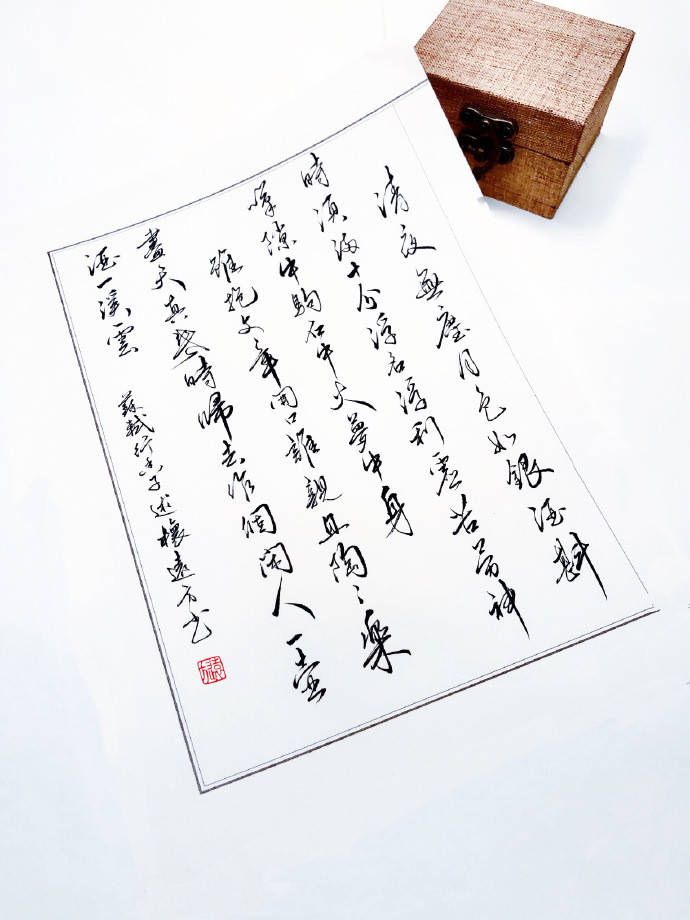 清夜無塵月色如銀酒斟
時須滿十分浮名浮利虛苦勞神
嘆隙中駒石中火夢中身
雖抱文章開口誰親且陶〻樂
盡天真幾時歸去作個閑人一壺
酒一溪雲
蘇軾行香子述懷遠方书